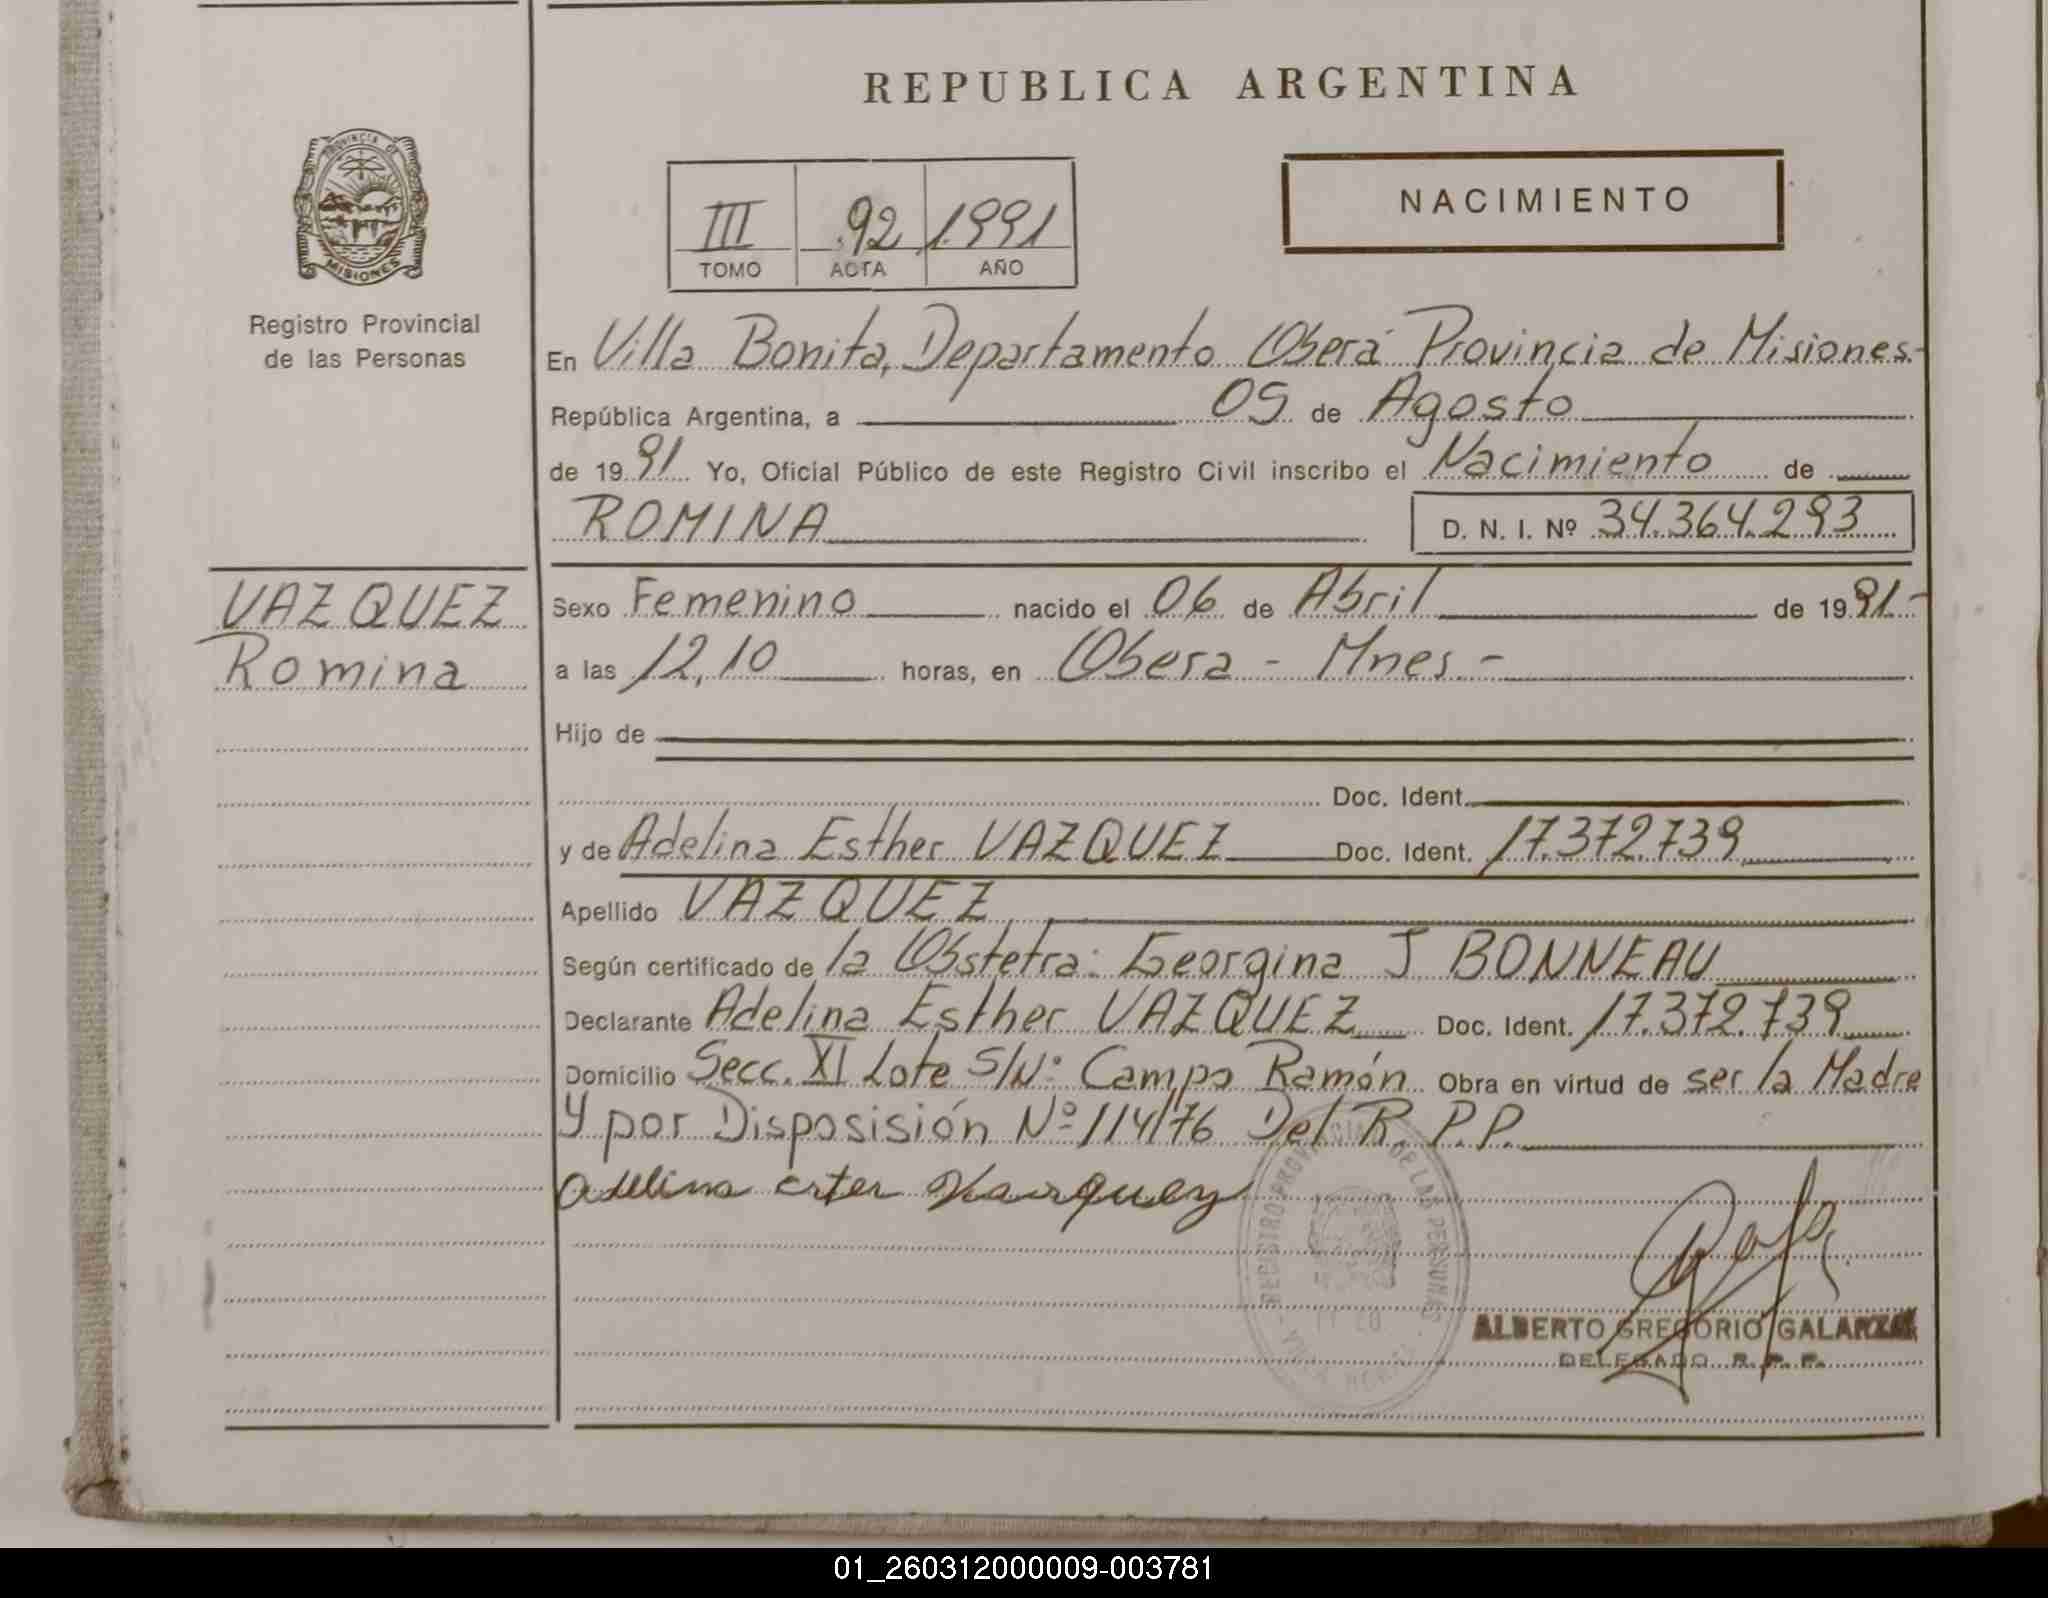 REPUBLICA ARGENTINA
PROVINCIA DE
MISIONES
Registro Provincial
de las Personas
III .92 1991
TOMO ACTA AÑO
NACIMIENTO
En Villa Bonita, Departamento Oberá Provincia de Misiones.-
República Argentina, a 05 de Agosto
de 1991 Yo, Oficial Público de este Registro Civil inscribo el Nacimiento de
ROMINA D. N. I. Nº 34.364.293
VAZQUEZ
Romina
Sexo Femenino nacido el 06 de Abril de 1991-
a las 12,10 horas, en Obera - Mnes -
Hijo de
Doc. Ident.
y de Adelina Esther VAZQUEZ Doc. Ident. 17.372.739
Apellido VAZQUEZ
Según certificado de la Obstetra: Georgina J BONNEAU
Declarante Adelina Esther VAZQUEZ Doc. Ident. 17.372.739
Domicilio Secc. XI Lote S/Nº Campo Ramón Obra en virtud de ser la Madre
y por Disposisión Nº 114/76 Del R. P.P.
Adelina ester Vazquez
REGISTRO PROVINCIAL DE LAS PERSONAS
VILLA BONITA
ALBERTO GREGORIO GALARZA
DELEGADO R. P. P.
01_260312000009-003781